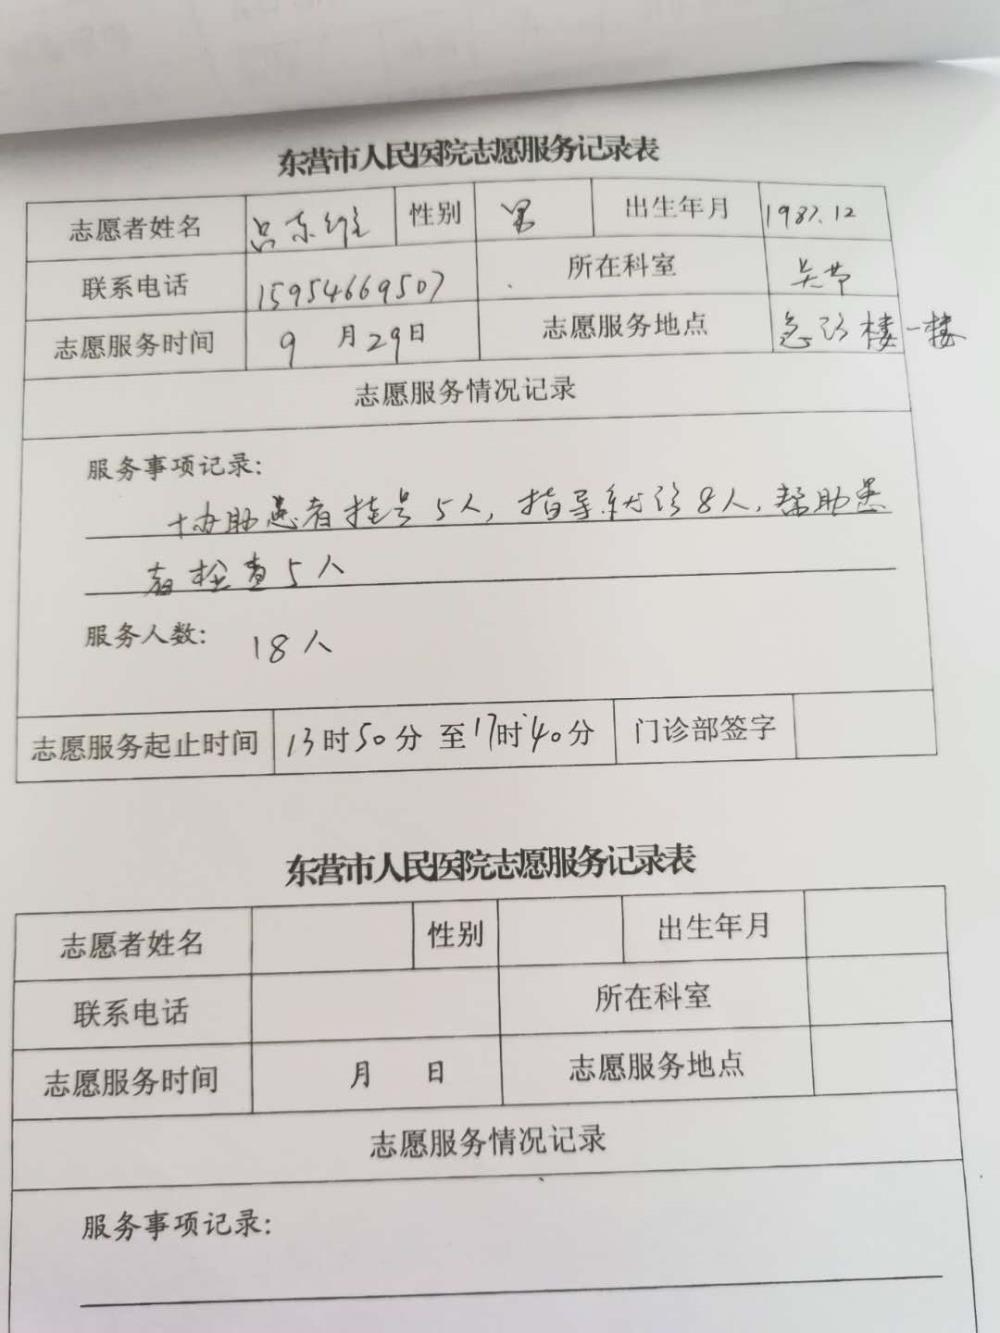 东营市人民医院志愿服务记录表
志愿者姓名 吕东维 性别 男 出生年月 1987.12
联系电话 15954669507 所在科室 关节
志愿服务时间 9月29日 志愿服务地点 急诊楼一楼
志愿服务情况记录
服务事项记录:
协助患者挂号5人,指导就诊8人,帮助患
者检查5人
服务人数: 18人
志愿服务起止时间 13时50分 至17时40分 门诊部签字
东营市人民医院志愿服务记录表
志愿者姓名 性别 出生年月
联系电话 所在科室
志愿服务时间 月 日 志愿服务地点
志愿服务情况记录
服务事项记录: